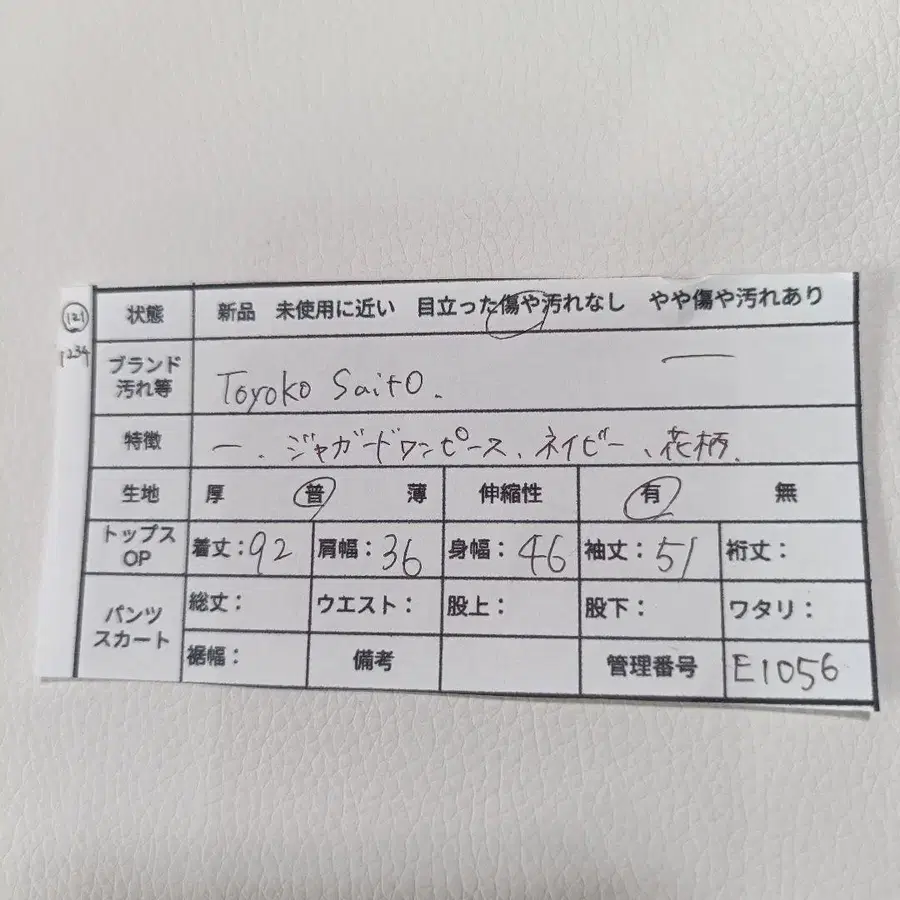 121
1234
状態 新品 未使用に近い 目立った傷や汚れなし やや傷や汚れあり
ブランド 汚れ等 Toyoko Saito. ―
特徴 ー . ジャガードワンピース、ネイビー、花柄.
生地 厚 普 薄 伸縮性 有 無
トップス OP 着丈:92 肩幅:36 身幅:46 袖丈:51 裄丈:
パンツ スカート 総丈: ウエスト: 股上: 股下: ワタリ:
裾幅: 備考 管理番号 E1056